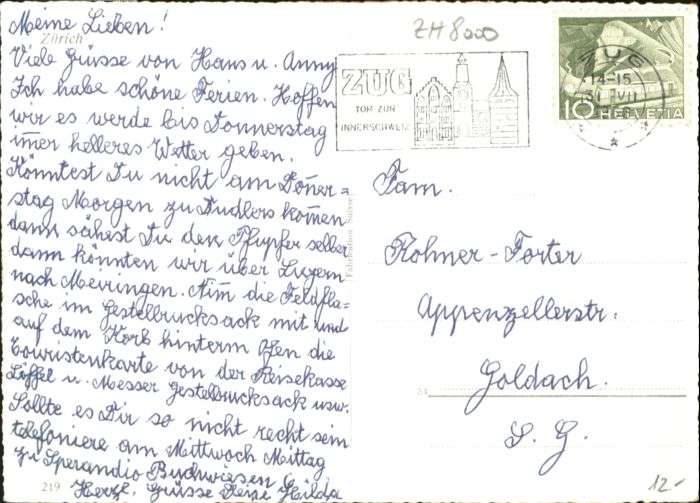 Meine Lieben!
Zürich
Viele Grüsse von Hans u. Anny
Ich habe schöne Ferien. Hoffen
wir es werde bis Donnerstag
im̄er helleres Wetter geben.
Könntest Du nicht am Don̄er=
stag Morgen zu Dudlers kom̄en
dann sähest Du den Pflupfer selber
dann könnten wir über Luzern
nach Meiringen. Nim̄ die Feldfla-
sche im Gestellrucksack mit und
auf dem Korb hinterm Ofen die
Touristenkarte von der Reisekasse
Löffel u. Messer Gestellrucksack usw.
Sollte es Dir so nicht recht sein
telefoniere am Mittwoch Mittag
zu Sperandio Buchwiesen 6
219 Herzl. Grüsse Deine Hilda
ZH 8000
ZUG
TOR ZUR
INNERSCHWEIZ
ZUG
14-15
31.VII
10 HELVETIA
Fam.
Rohner-Forter
Appenzellerstr.
Goldach.
S. G.
12.-